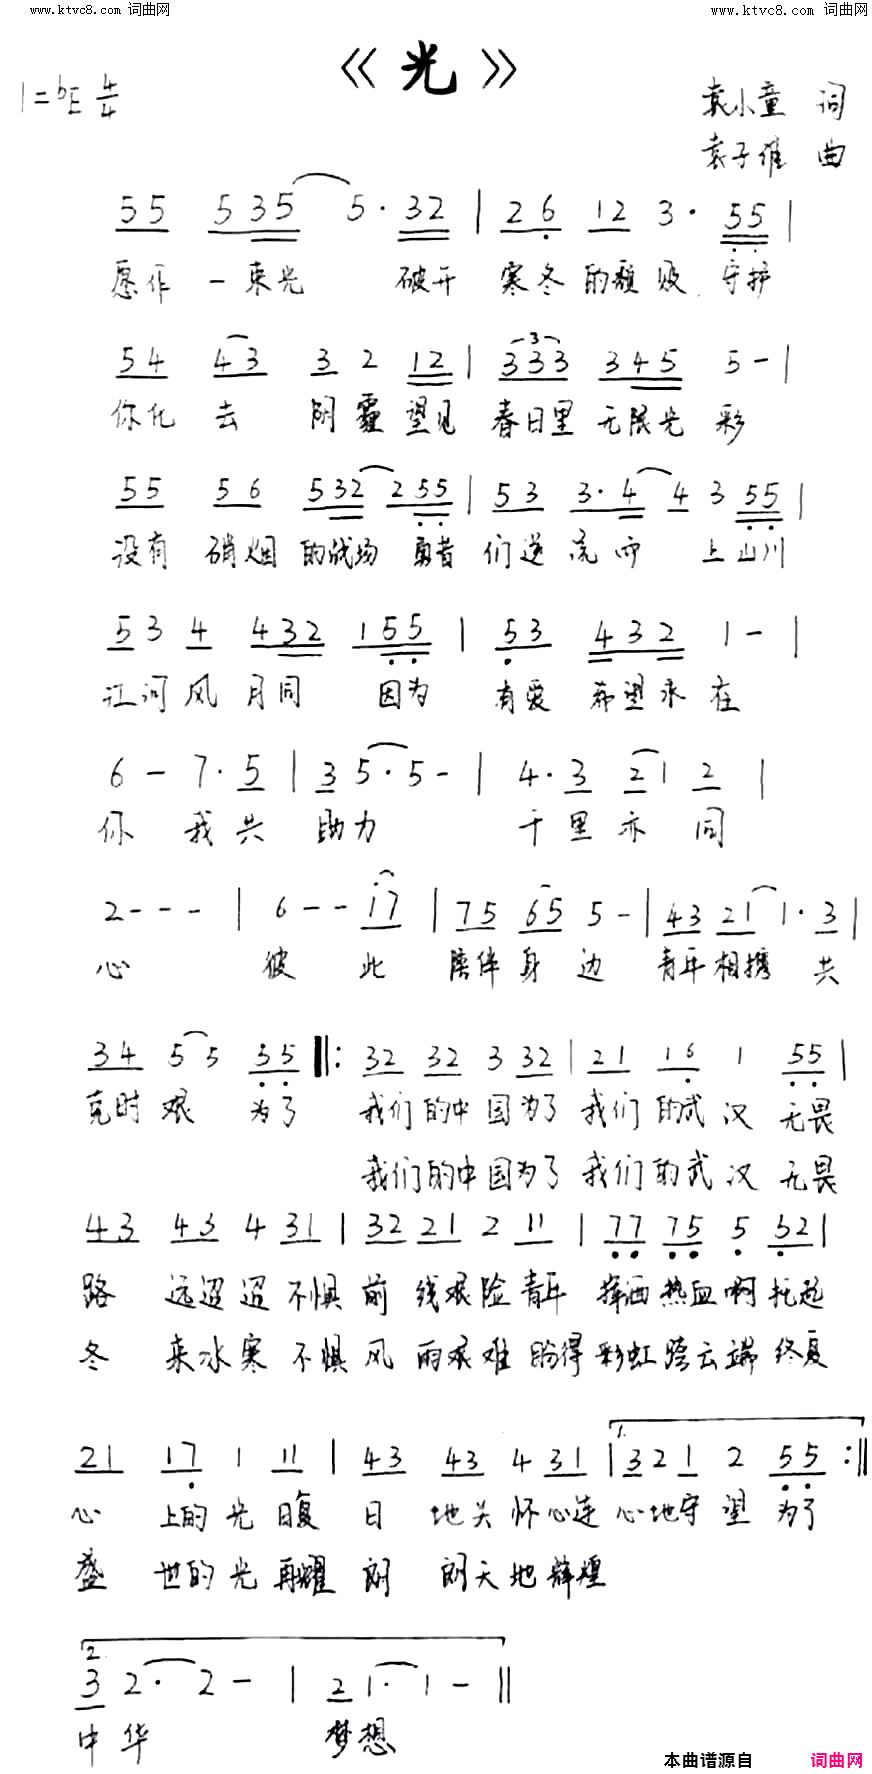 www.ktvc8.com 词曲网 www.ktvc8.com 词曲网
《光》
1=♭E 4/4
袁小童 词
袁子雄 曲
55 535 5· 32 | 26 12 3· 55 |
愿作一束光 破开寒冬的颓败 守护
54 43 3 2 12 | 333 345 5 - |
你化去阴霾望见春日里无限光彩
55 56 532 255 | 53 3·4 4 3 55 |
没有硝烟的战场 勇者们逆流而上山川
53 4 432 155 | 53 432 1 - |
江河风月同 因为有爱希望永在
6 - 7·5 | 35·5 - | 4·3 21 2 |
你我共助力 千里亦同
2 - - - | 6 - - 17 | 75 65 5 - | 43 21 1·3 |
心 彼此陪伴身边 青年相携 共
34 55 55 ‖: 32 32 3 32 | 21 16 1 55 |
克时艰 为了 我们的中国为了我们的武汉无畏
我们的中国为了我们的武汉无畏
43 43 4 31 | 32 21 2 11 | 77 75 5 52 |
路远迢迢不惧前线艰险青年挥洒热血啊托起
冬来冰寒不惧风雨艰难盼得彩虹跨云端终复
21 17 1 11 | 43 43 4 31 | 1. 32 1 2 55 :‖
心上的光日复日地关怀心连心地守望为了
盛世的光再耀朗朗天地辉煌
2. 3 2· 2 - | 21· 1 - ‖
中华 梦想
本曲谱源自 词曲网